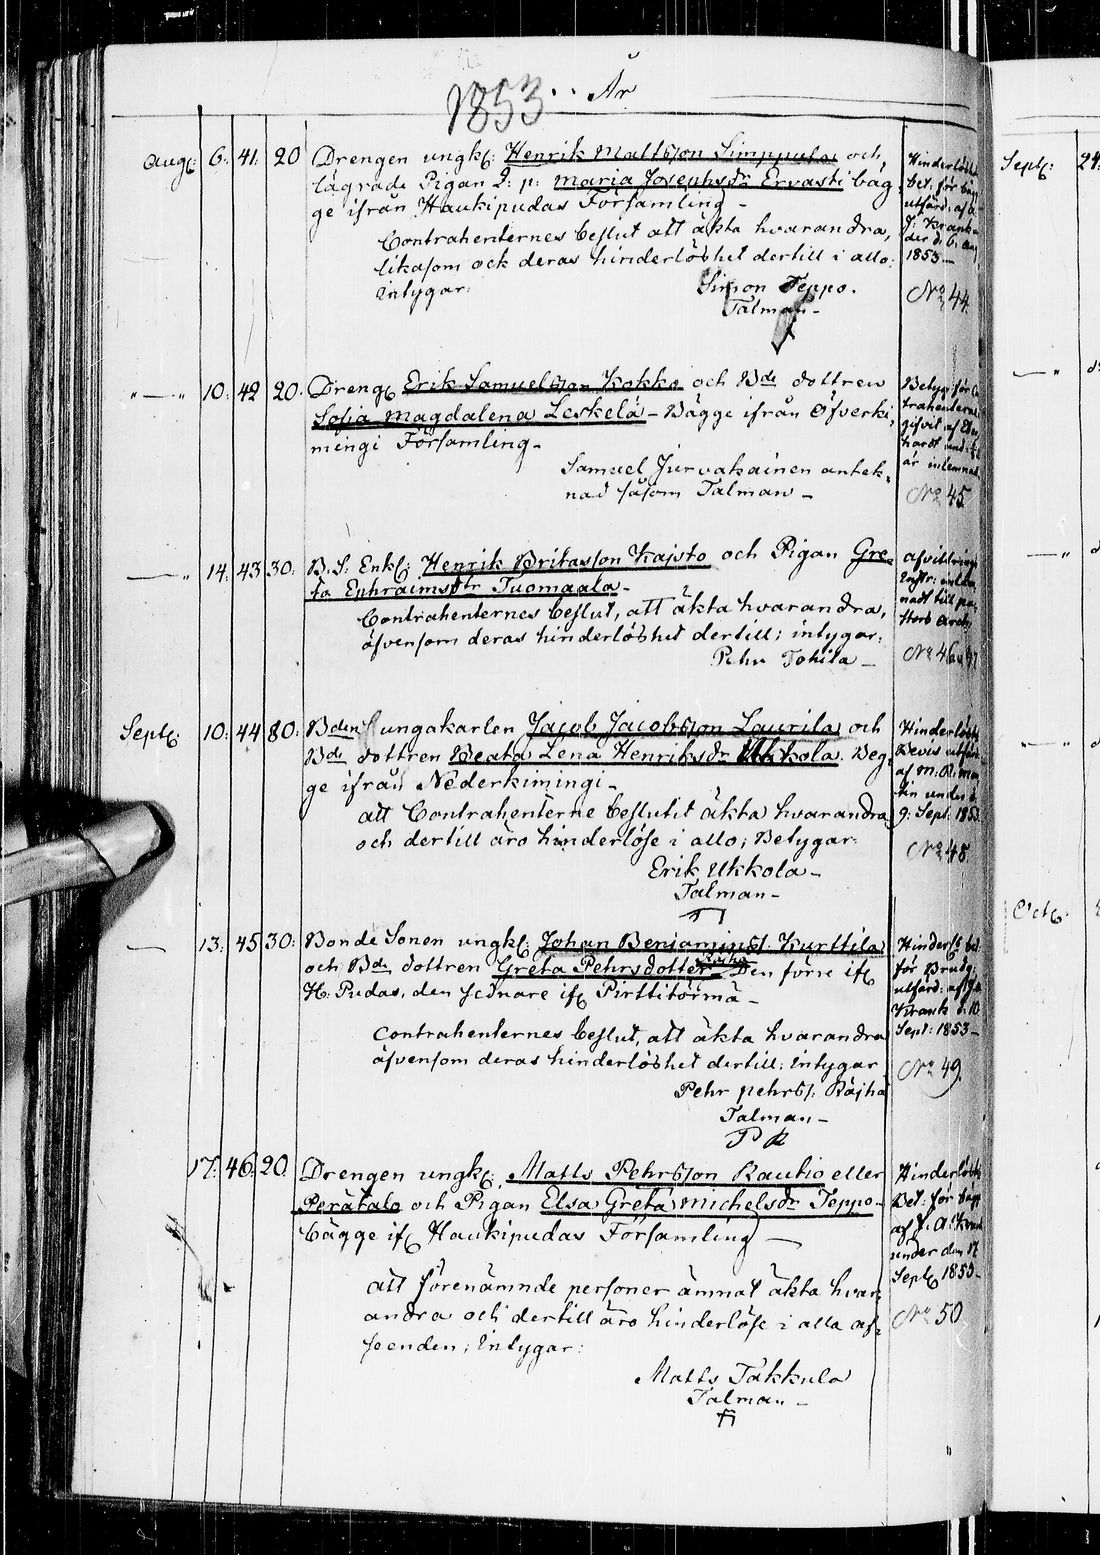 1853 .. År
Augς: 6. 41. 20 Drengen ungkς: Henrik Mattsson Simppula och
lägrade Pigan Q: p: Maria Josephsdr Ervasti bäg
ge ifrån Haukipudas Församling -
Contrahenternes beslut att äkta hvarandra,
likasom ock deras hinderlöshet dertill i allo:
intygar:
Simon Teppo.
Talman -
Hinderlöshets
bet: för bäg
utfärd: af
J: Krank
der d. 6. Aug
1853 -
No 44.
" — " 10. 42 20. Drengς Erik Samuelsson Kokko och Bde dottren
Sofia Magdalena Leskelä - Bägge ifrån Öfverki,
mingi Församling -
Samuel Jurvakainen antek,
nad såsom Talman -
Betyg för
trahenterne
gifvit af
hardt und:
är inlemnad
No 45
— " 14. 43 30. B. S. Enkl: Henrik Britasson Kajsto och Pigan Gre-
ta Ephraimsdtr Tuomaala -
Contrahenternes beslut, att äkta hvarandra,
äfvensom deras hinderlöshet dertill; intygar:
Pehr Tohila -
afvittrings
Instr: inlem
nadt till pa,
stors Arch:
No 46 47
Septς: 10. 44 80. Bden ungakarlen Jacob Jacobsson Laurila och
Bde dottren Beata Lena Henriksdr Ukkola. Beg,
ge ifrån Nederkimingi -
att Contrahenterne beslutit äkta hvarandra
och dertill äro hinderlöse i allo; Betygar:
Erik Ukkola -
Talman -
Hinderlöshets
Bevis utfär
af M:
tin under d.
9. Sept. 1853
No 48.
— 13. 45 30. Bonde Sonen ungkς: Johan Benjamins. Kurttila
och Bde dottren Greta Pehrsdotter Räiha Den förre ifς
H: Pudas, den sednare ifς Pirttitörmä -
Contrahenternes beslut, att äkta hvarandra
äfvensom deras hinderlöshet dertill; intygar
Pehr Pehrs. Räihä
Talman -
P R
Hinders bet
för Brudg:
utfärd: af
Krank d. 10
Sept: 1853 -
No 49.
17. 46. 20. Drengen ungkς: Matts Pehrsson Rautio eller
Perätalo och Pigan Elsa Greta Michelsdr Teppo -
bägge ifς Haukipudas Församling —
att förenämnde personer ämnat äkta hvar,
andra och dertill äro hinderlöse i alla af,
seenden; intygar:
Matts Takkula
Talman -
Hinderlöshets
Bet: för bägg
af J. A. Krank
under den 17
Septς 1853 -
No 50
Septς: 24.
— "
— "
— "
Octς: